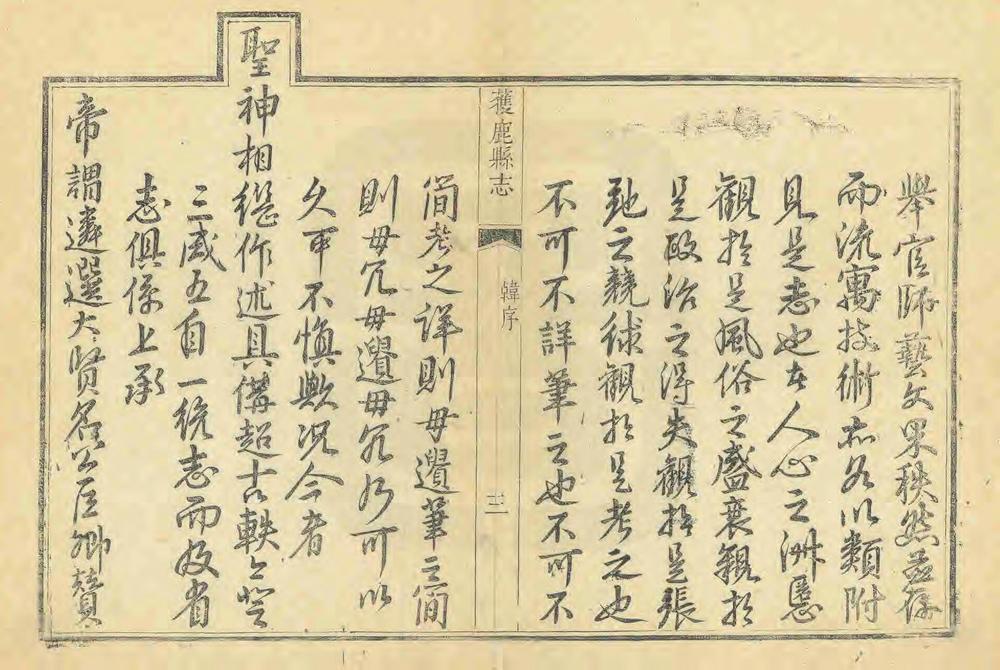 舉官師藝文果秩然並存
而流寓技術亦各以類附
見是志也古人心之淑慝
觀於是風俗之盛衰觀於
是政治之得失觀於是張
弛之競絿觀於是考之也
不可不詳筆之也不可不
獲鹿縣志
韓序
十二
簡考之詳則毋遺筆之簡
則毋冗毋遺毋冗乃可以
久可不慎歟況今者
聖神相繼作述具備超古軼今登
三咸五自一統志而及省
志俱係上承
帝謂遴選大賢名公巨卿贊